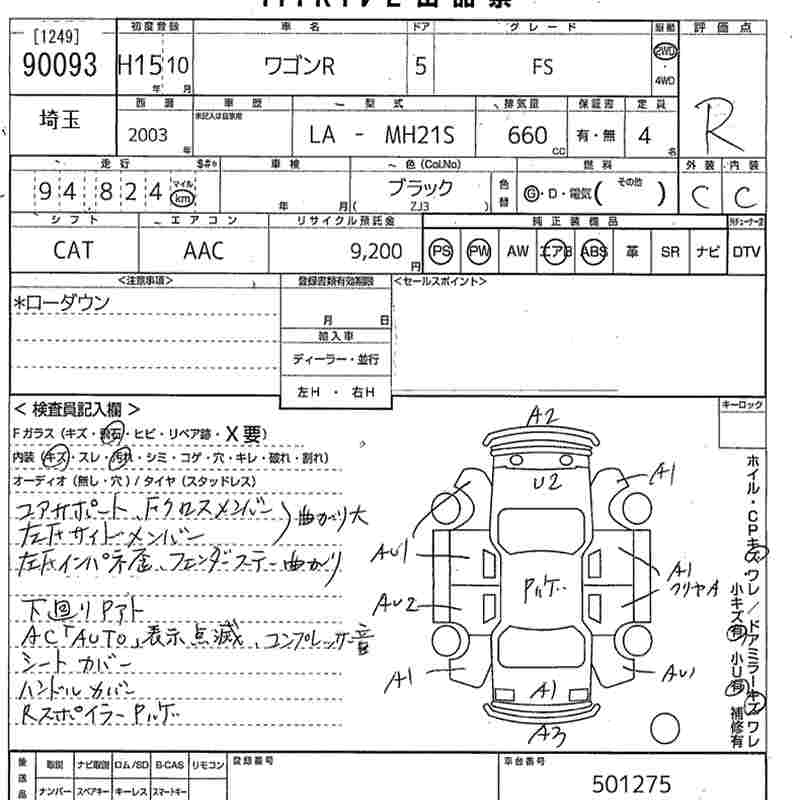 [1249]
90093
初度登録 車名 ドア グレード 駆動 評価点
H15 10 ワゴンR 5 FS 2WD・4WD R
年 月
埼玉
西暦 車歴 型式 排気量 保証書 定員
未記入は自家用
2003年 LA - MH21S 660cc 有・無 4名
走行 車検 色(Col.No) 燃料 外装 内装
94,824 マイル km 年 月 ブラック ( ZJ3 ) 色替 G・D・電気( その他 ) C C
シフト エアコン リサイクル預託金 純正装備品
CAT AAC 9,200円 PS PW AW エアB ABS 革 SR ナビ DTV
<注意事項> 登録書類有効期限 <セールスポイント>
*ローダウン
月 日
輸入車
ディーラー・並行
左H ・ 右H
<検査員記入欄> キーロック
Fガラス(キズ・飛石・ヒビ・リペア跡・X要)
内装(キズ・スレ・汚れ・シミ・コゲ・穴・キレ・破れ・割れ)
オーディオ(無し・穴)/タイヤ(スタッドレス)
コアサポート、Fクロスメンバー
左Fサイドメンバー
曲がり大
左Fインパネ歪、フェンダーステー曲がり
下回りPアト
AC「AUTO」表示点滅、コンプレッサー音
シートカバー
ハンドルカバー
RスポイラーPハゲ
A2
U2
A1
AU1
A1
クリヤA
AU2
Pハゲ
A1
A1
AU1
A3
ホイル・CPキズ・ワレ/ドアミラーキズ・ワレ
小キズ有 小U有 補修有
後送品 取説 ナビ取説 ロム/SD B-CAS リモコン 登録番号 車台番号
ナンバー スペアキー キーレス スマートキー 501275